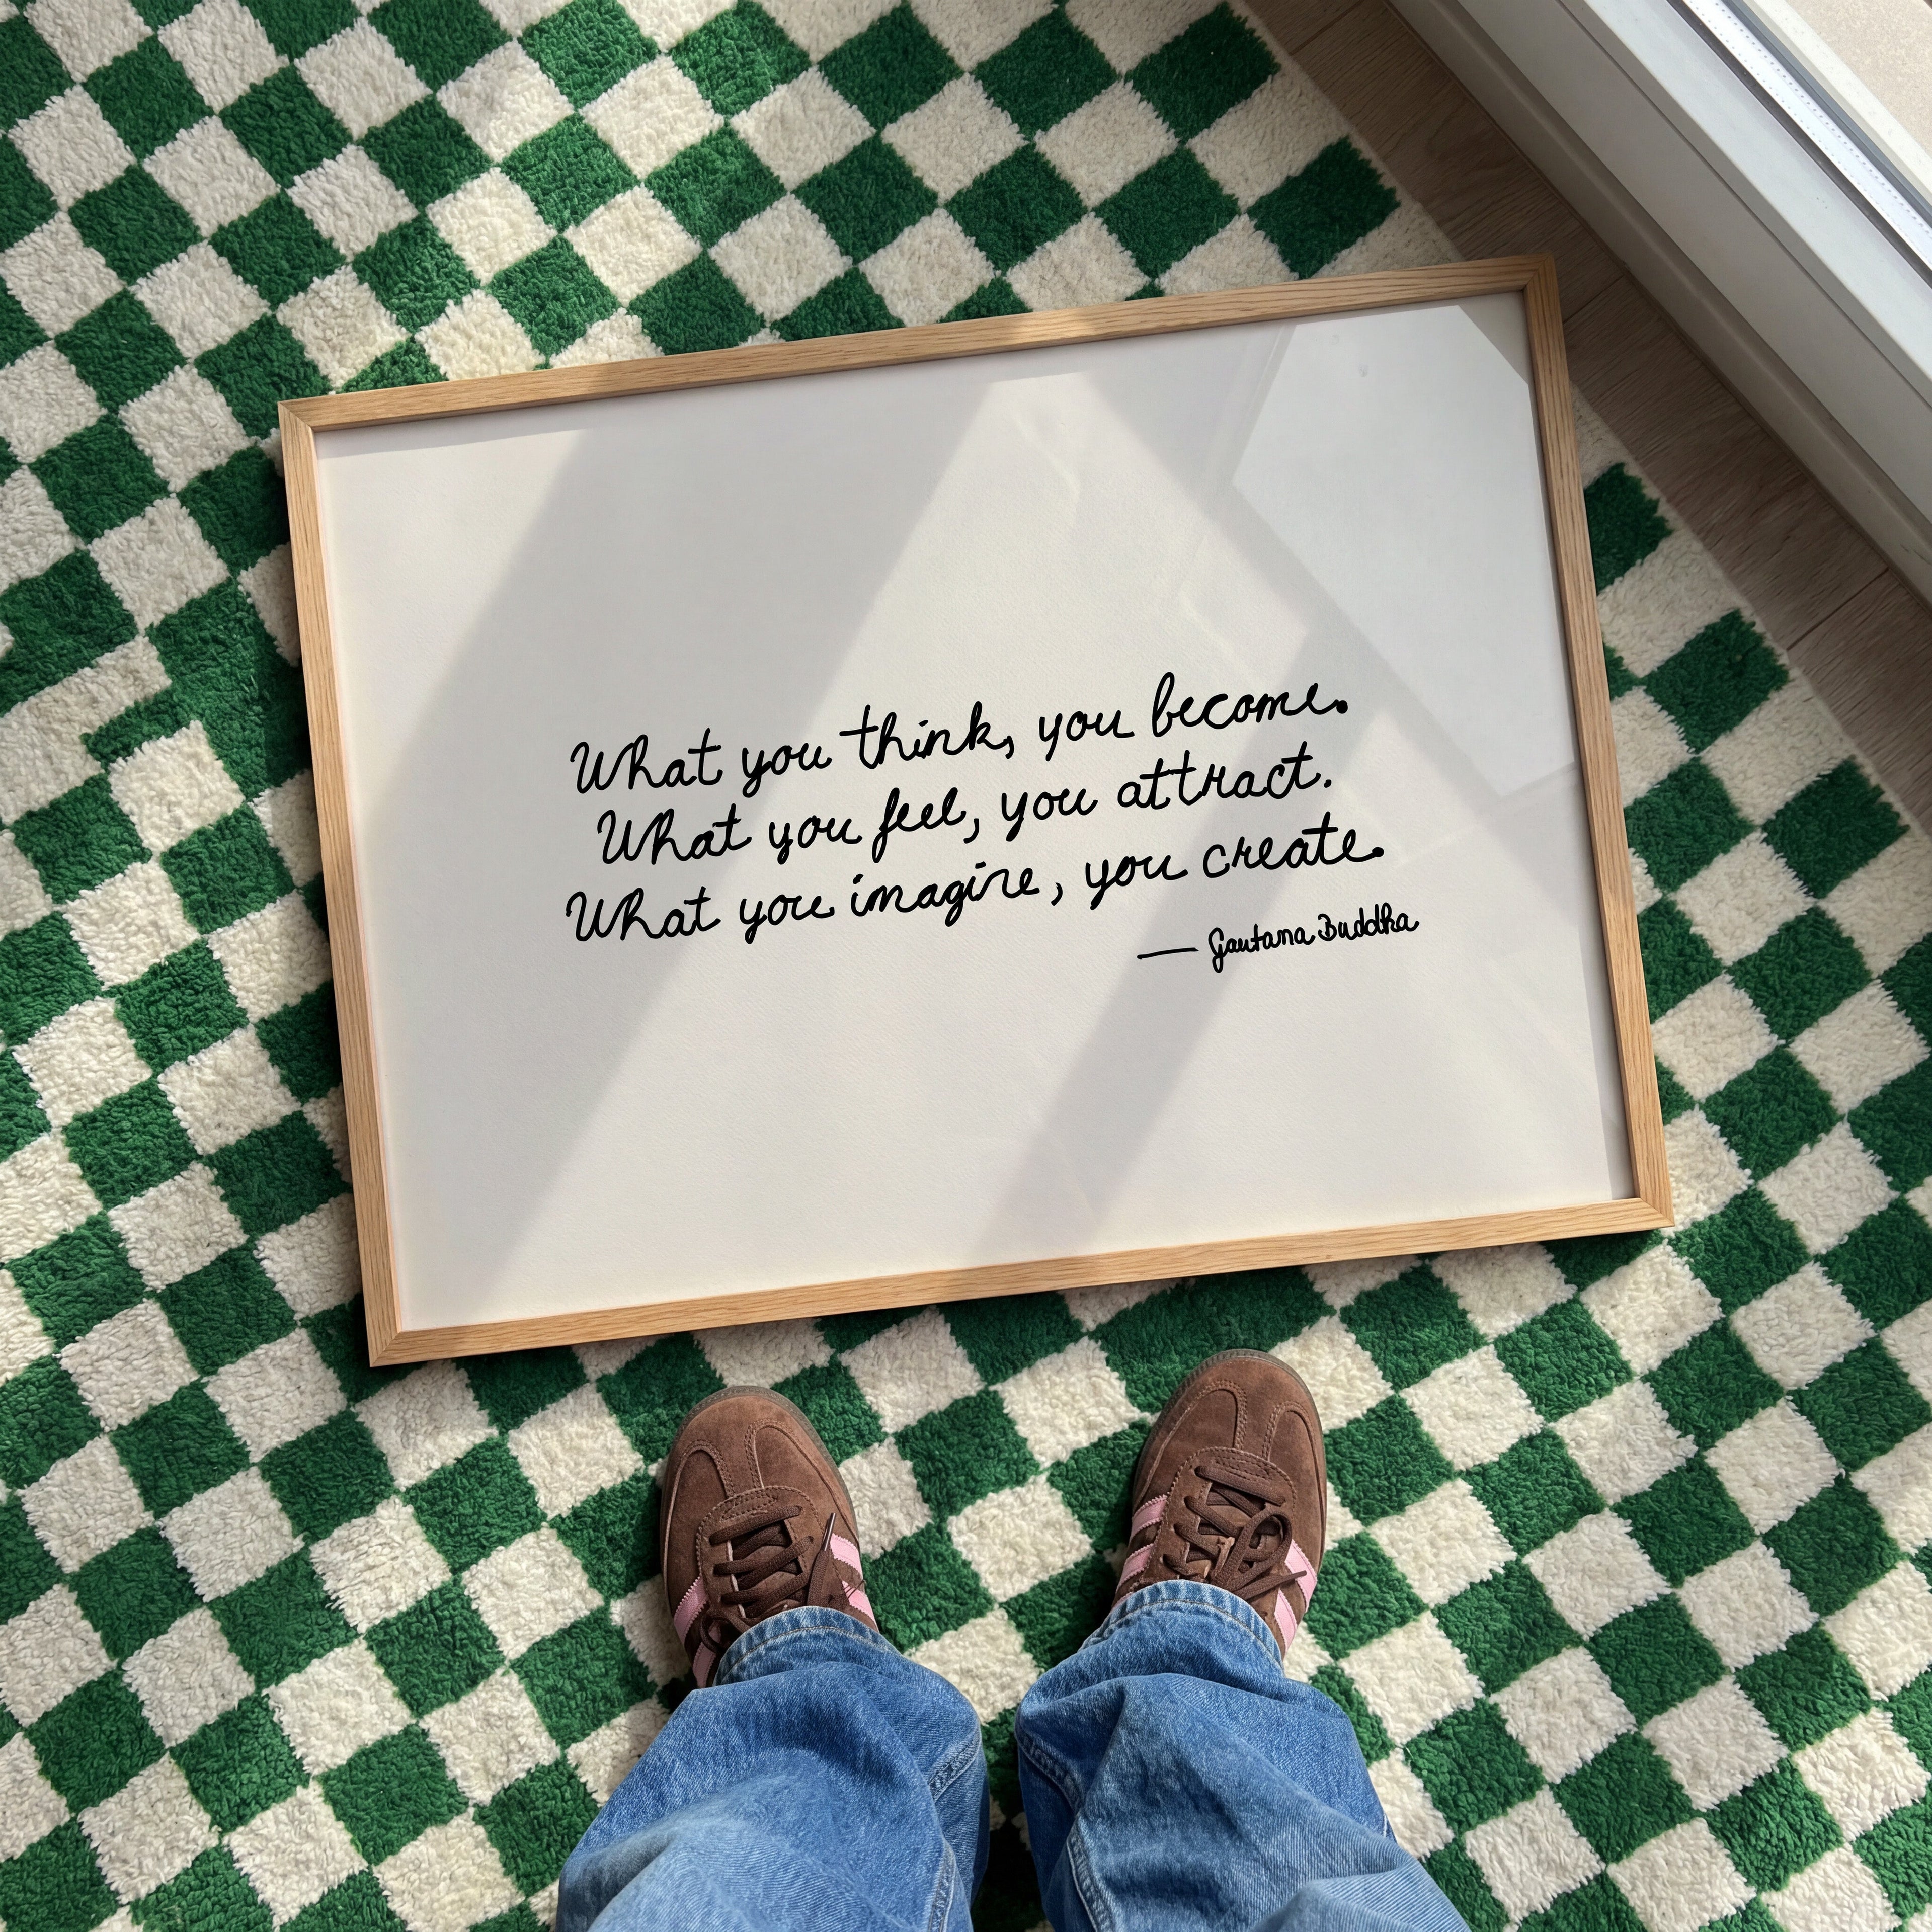 What you think, you become.
What you feel, you attract.
What you imagine, you create.
— Gautama Buddha